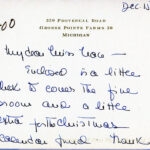 Dec. 12
00
329 Provencal Road
Grosse Pointe Farms 30
Michigan
My dear Miss
Enclosed is a little
to cover the fine
and a little
extra for the Christmas
Calendar fund. Thank